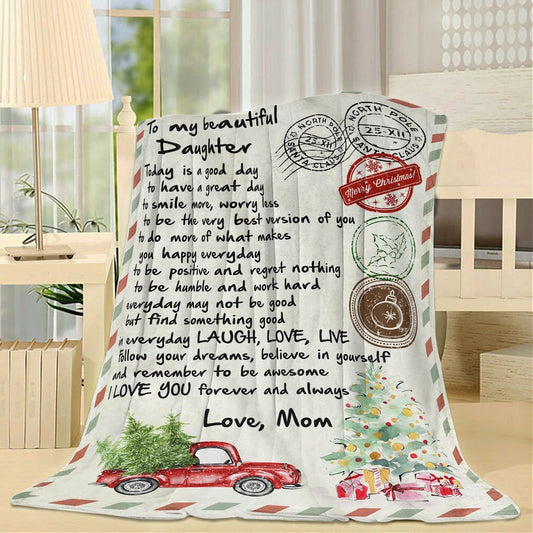 To my beautiful
Daughter
Today is a good day
to have a great day
to smile more, worry less
to be the very best version of you
to do more of what makes
you happy everyday
to be positive and regret nothing
to be humble and work hard
everyday may not be good
but find something good
in everyday LAUGH, LOVE, LIVE
Follow your dreams, believe in yourself
and remember to be awesome
I LOVE YOU forever and always
Love, Mom
NORTH POLE
25·XII
SANTA CLAUS
NORTH POLE
25-XII
SANTA CLAUS
Merry Christmas!